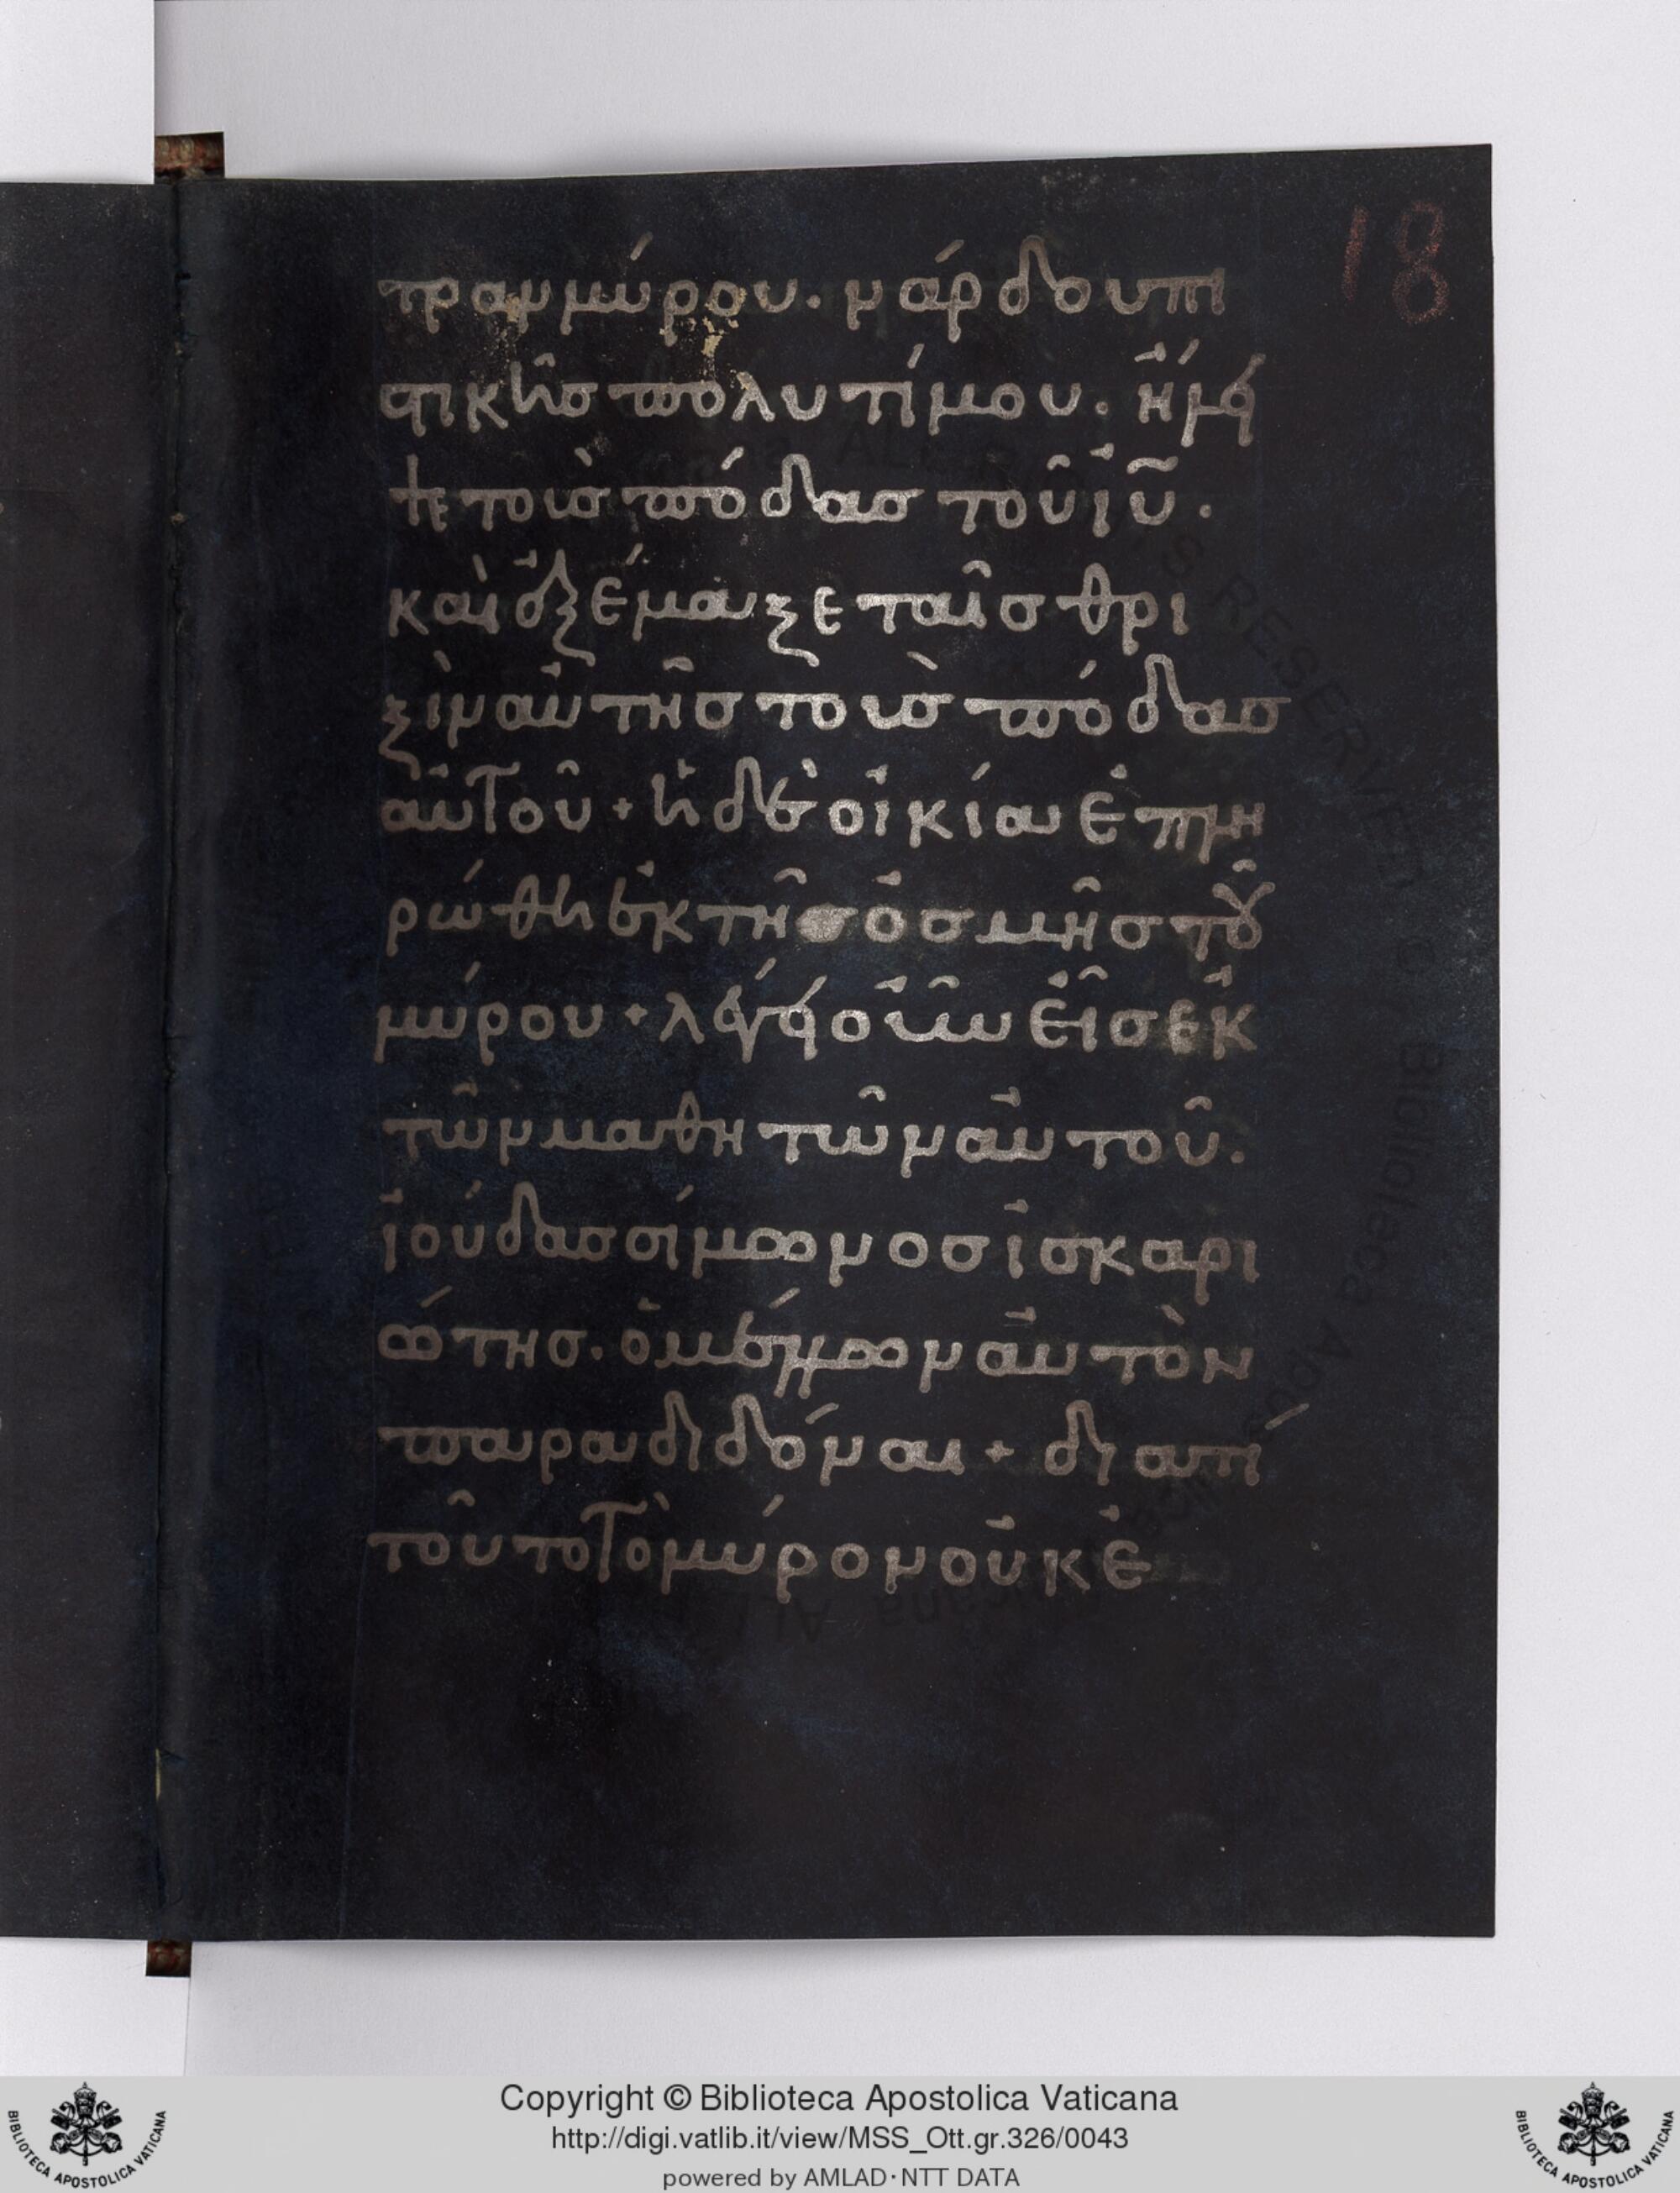 18
τραν μύρου. νάρδου πι
στικῆς πολυτίμου. ἤλει
ψε τοὺς πόδας τοῦ ἰῦ.
καὶ ἐξέμαξε ταῖς θρι
ξὶν αὐτῆς τοὺς πόδας
αὐτοῦ + ἡ δὲ οἰκία ἐπλη
ρώθη ἐκ τῆς ὀσμῆς τοῦ
μύρου + λέγει οὖν εἷς ἐκ
τῶν μαθητῶν αὐτοῦ.
ἰούδας σίμωνος ἰσκαρι
ώτης. ὁ μέλλων αὐτὸν
παραδιδόναι + διατί
τοῦτο τὸ μύρον οὐκ ἐ
Copyright © Biblioteca Apostolica Vaticana
http://digi.vatlib.it/view/MSS_Ott.gr.326/0043
powered by AMLAD · NTT DATA
BIBLIOTECA APOSTOLICA VATICANA
BIBLIOTECA APOSTOLICA VATICANA